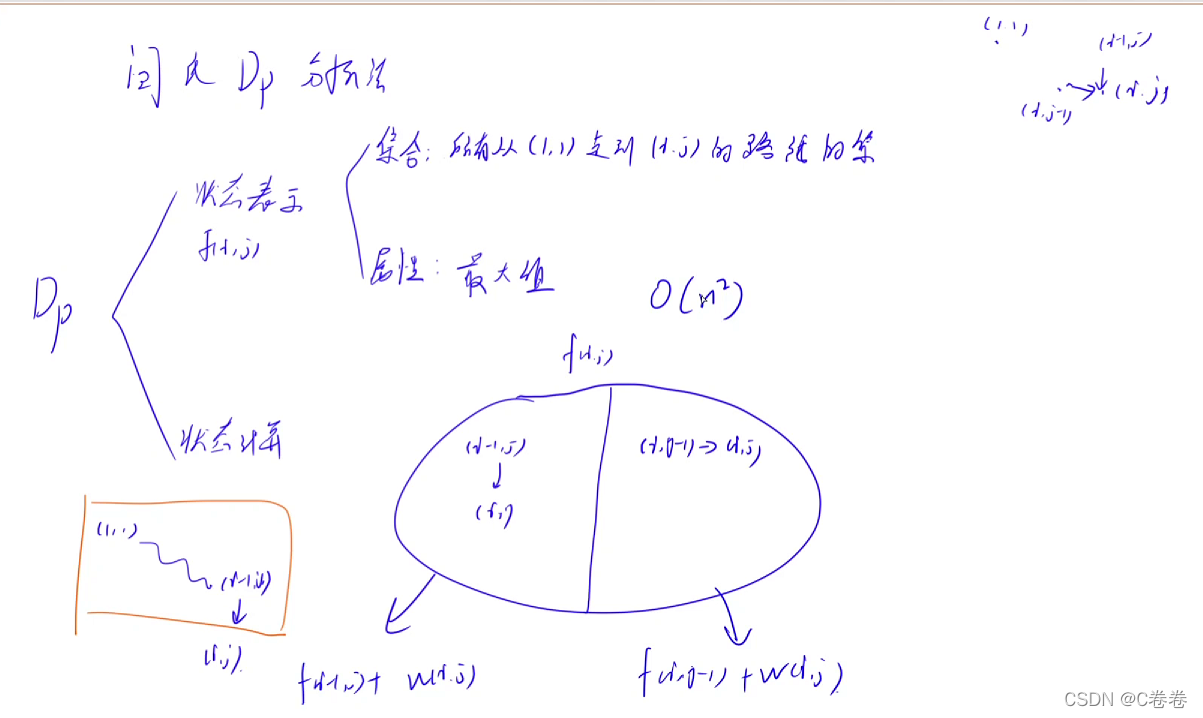 闫氏Dp分析法
(1,1)
(i-1,j)
(i,j-1)
(i,j)
Dp
状态表示
f(i,j)
集合:所有从(1,1)走到(i,j)的路径的集
属性:最大值
O(n²)
状态计算
f(i,j)
(i-1,j)
(i,j)
(i,j-1)→(i,j)
(1,1)
(i-1,j)
(i,j)
f(i-1,j)+ w(i,j)
f(i,j-1)+w(i,j)
CSDN @C卷卷